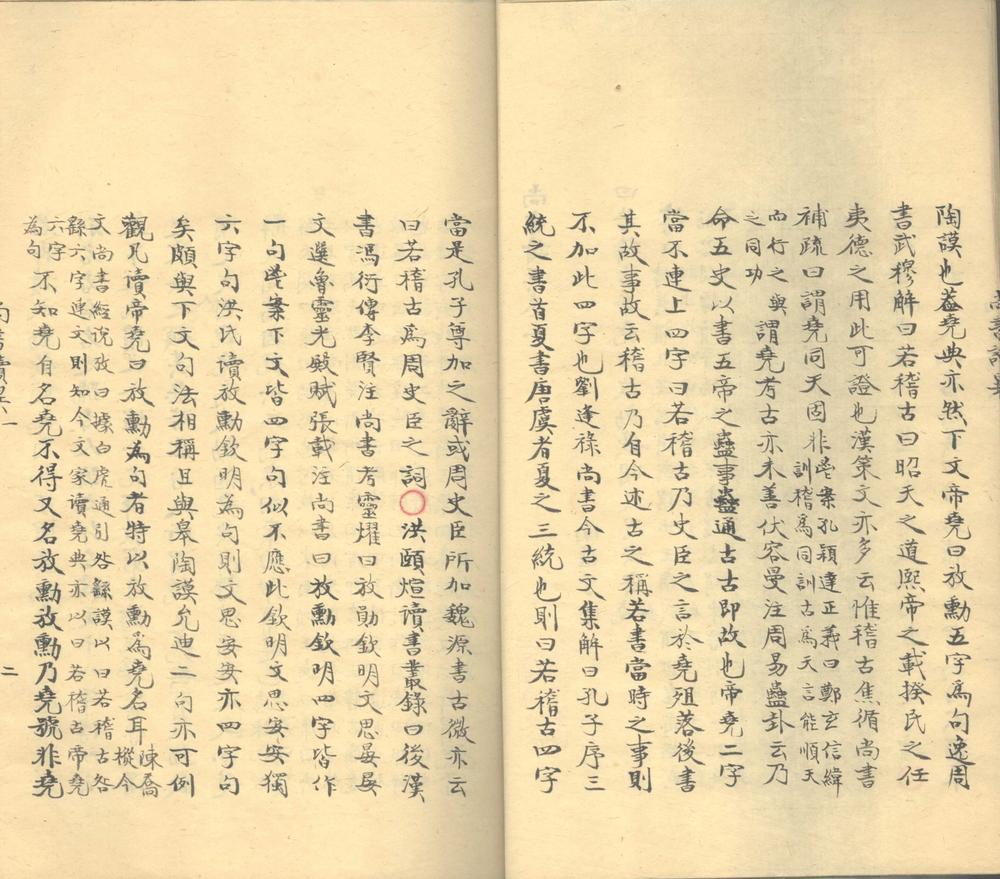 陶謨也葢堯典亦然下文帝堯曰放勳五字爲句逸周
書武穆解曰若稽古曰昭天之道熙帝之載揆民之任
夷德之用此可證也漢策文亦多云惟稽古焦循尚書
補疏曰謂堯同天固非
瑩案孔穎達正義曰鄭玄信緯
訓稽爲同訓古爲天言能順天
而行之與
之同功
謂堯考古亦未善伏容曼注周易蠱卦云乃
命五史以書五帝之蠱事蠱通古古即故也帝堯二字
當不連上四字曰若稽古乃史臣之言於堯殂落後書
其故事故云稽古乃自今述古之稱若書當時之事則
不加此四字也劉逢祿尚書今古文集解曰孔子序三
統之書首夏書唐虞者夏之三統也則曰若稽古四字
當是孔子尊加之辭或周史臣所加魏源書古微亦云
曰若稽古爲周史臣之詞〇洪頤煊讀書叢錄曰後漢
書馮衍傳李賢注尚書考靈燿曰放勛欽明文思晏晏
文選魯靈光殿賦張載注尚書曰放勳欽明四字皆作
一句瑩案下文皆四字句似不應此欽明文思安安獨
六字句洪氏讀放勳欽明為句則文思安安亦四字句
矣頗與下文句法相稱且與皋陶謨允迪二句亦可例
觀凡讀帝堯曰放勳為句者特以放勳爲堯名耳
陳喬
樅今
文尚書經說攷曰據白虎通引咎繇謨以曰若稽古咎
繇六字連文則知今文家讀堯典亦以曰若稽古帝堯
六字
為句
不知堯自名堯不得又名放勳放勳乃堯號非堯
尚書讀異一
二